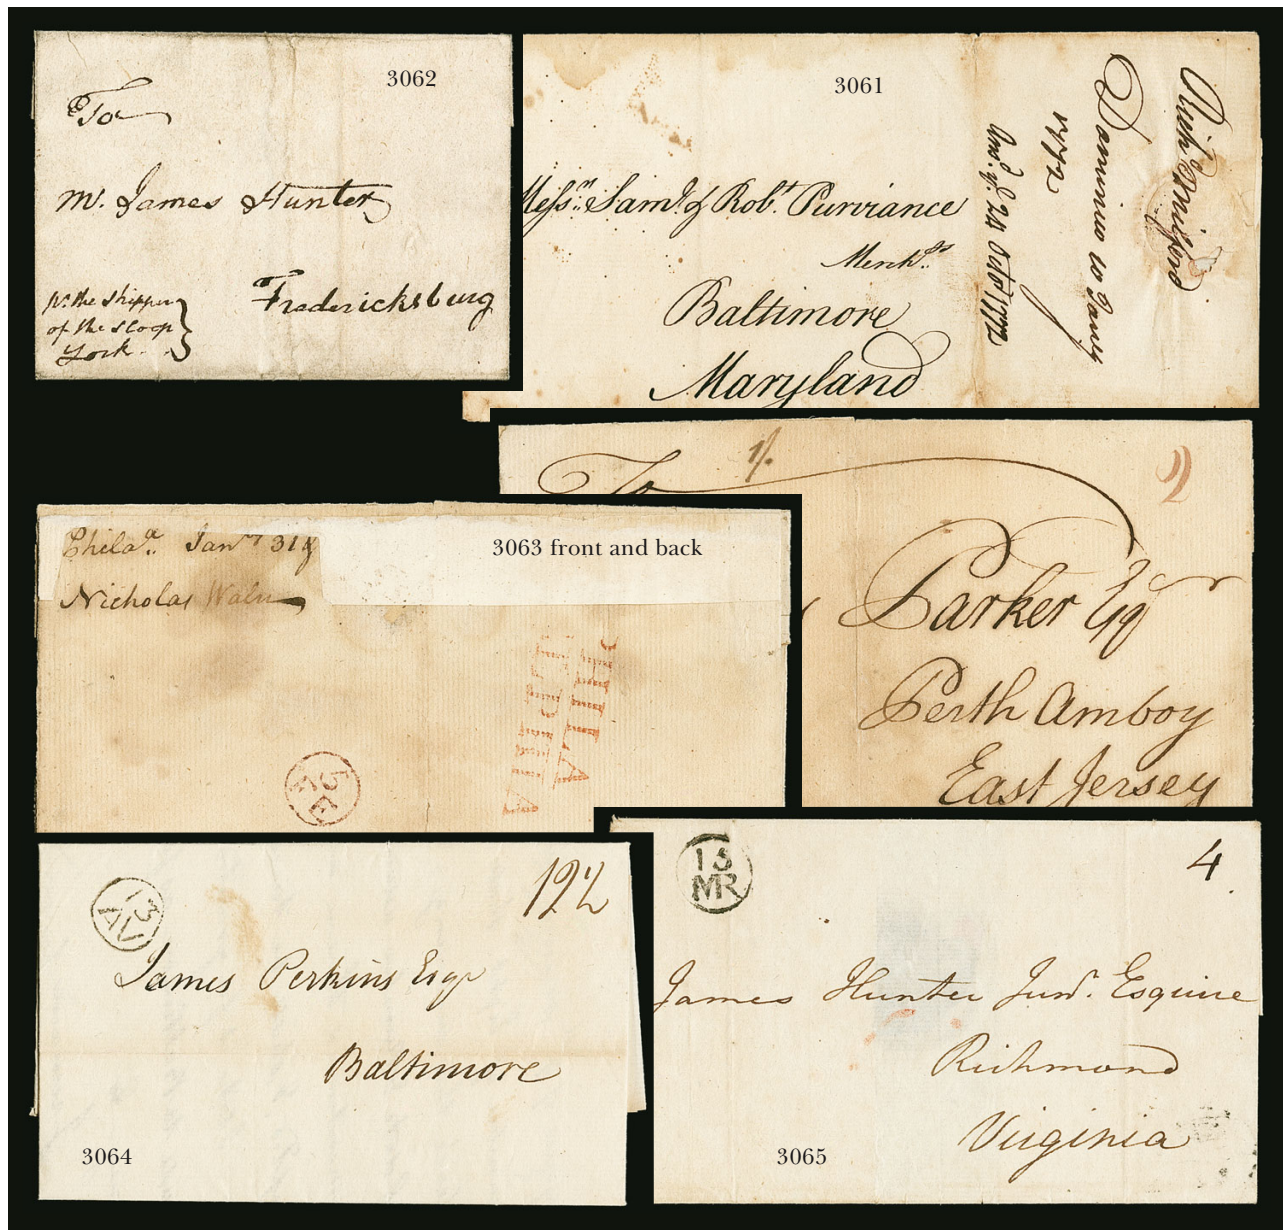 3062
To
Mr. James Hunter
Fredericksburg
pr. the Skipper
of the Sloop
York
3061
Messrs. Saml. & Robt. Purviance
Merchts.
Baltimore
Maryland
Dominico 10 Jany
1772
Ansd. ye. 24 Octor 1772
To
1/.
2
Parker Esqr
Perth Amboy
East Jersey
3063 front and back
Philaa. Jany 31
Nicholas Waln
PHILA
DEPHIA
13
AV
12½
James Perkins Esqr
Baltimore
3064
13
MR
4
James Hunter Junr. Esquire
Richmond
Virginia
3065